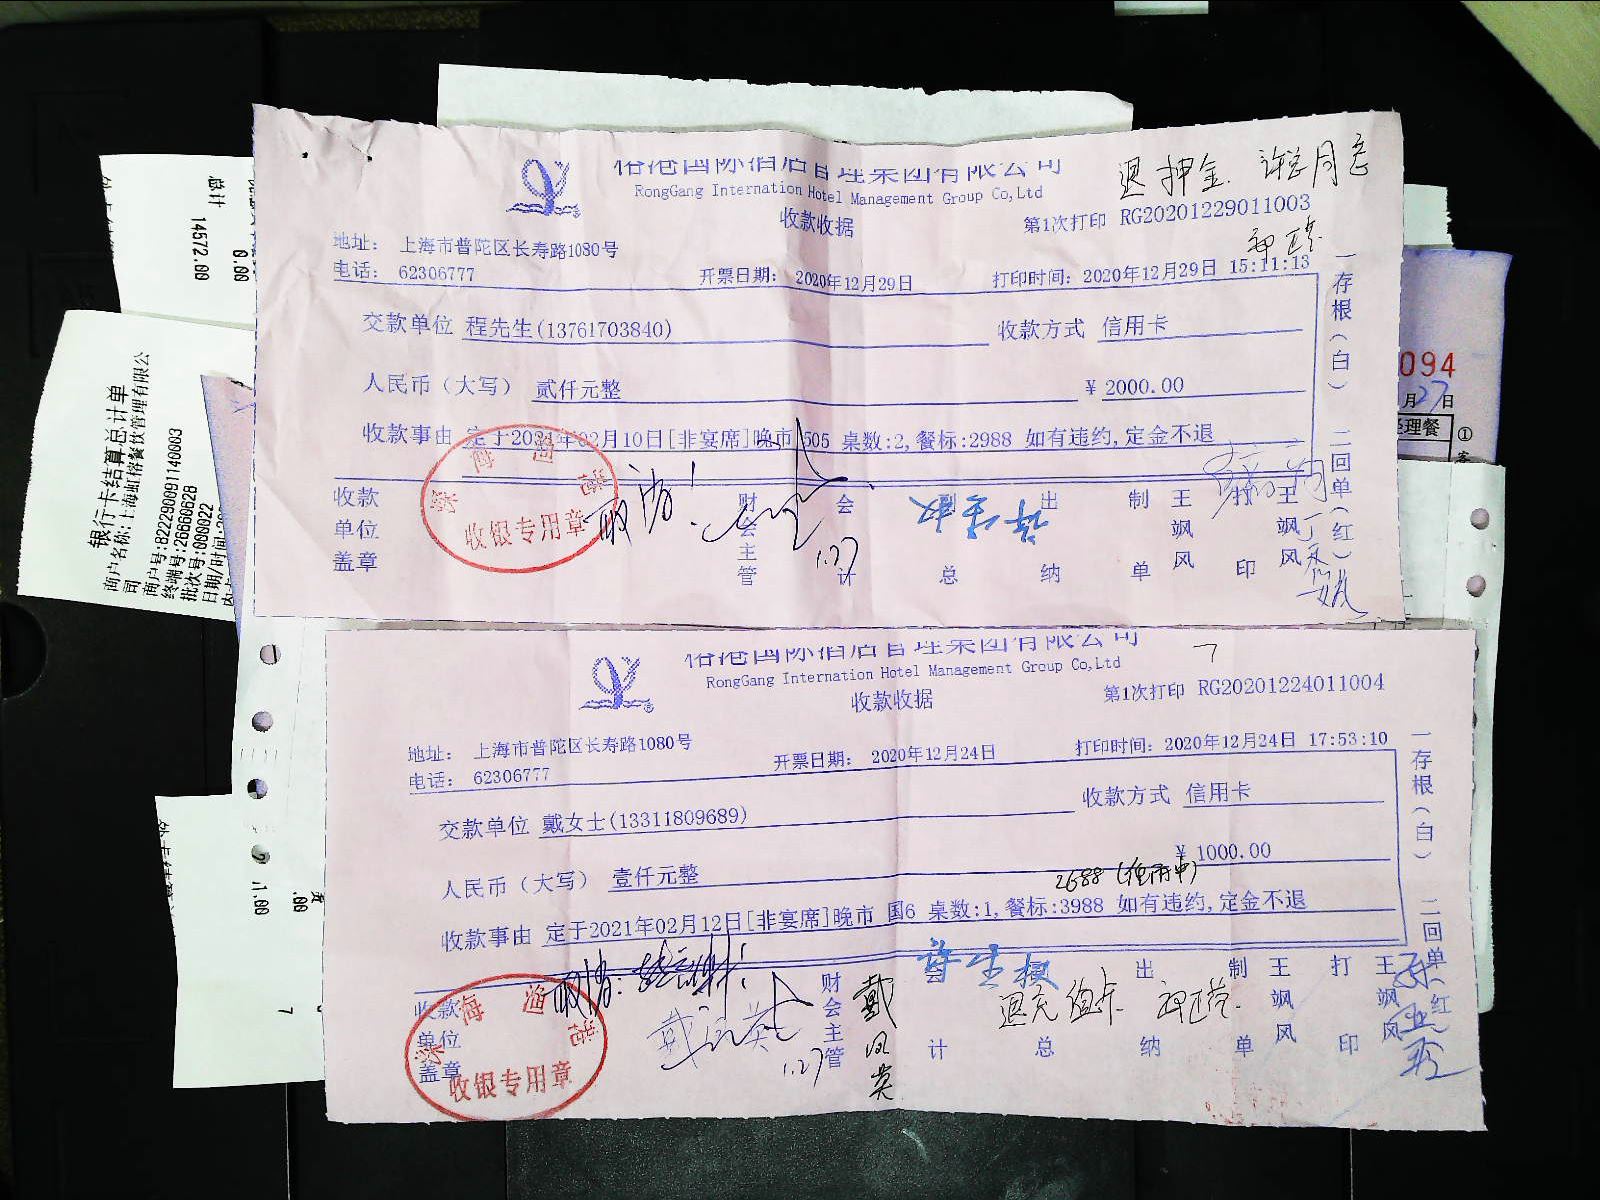 总计
14572.00
0.00
银行卡结算总计单
商户名称:上海虹榕餐饮管理有限公
司
商户号:822290091140003
终端号:26660628
批次号:000022
日期/时间:
退押金.
RongGang International Hotel Management Group Co,Ltd
收款收据
第1次打印 RG20201229011003
地址: 上海市普陀区长寿路1080号
电话: 62306777
开票日期: 2020年12月29日
打印时间: 2020年12月29日 15:11:13
交款单位 程先生(13761703840)
收款方式 信用卡
人民币(大写) 贰仟元整
¥ 2000.00
收款事由 定于2021年02月10日[非宴席]晚市 505 桌数:2,餐标:2988 如有违约,定金不退
收款单位盖章
收银专用章
财会主管
会计
总
出纳
制单
王飒风
打印
王飒风
一存根(白) 二回单(红)
1.27
094
月27日
经理餐
①
客
RongGang International Hotel Management Group Co,Ltd
收款收据
第1次打印 RG20201224011004
地址: 上海市普陀区长寿路1080号
电话: 62306777
开票日期: 2020年12月24日
打印时间: 2020年12月24日 17:53:10
交款单位 戴女士(13311809689)
收款方式 信用卡
人民币(大写) 壹仟元整
¥ 1000.00
2688
收款事由 定于2021年02月12日[非宴席]晚市 国6 桌数:1,餐标:3988 如有违约,定金不退
收款单位盖章
收银专用章
财会主管
会计
总
出纳
制单
王飒风
打印
王飒风
一存根(白) 二回单(红)
戴凤英
1.27
退充值卡